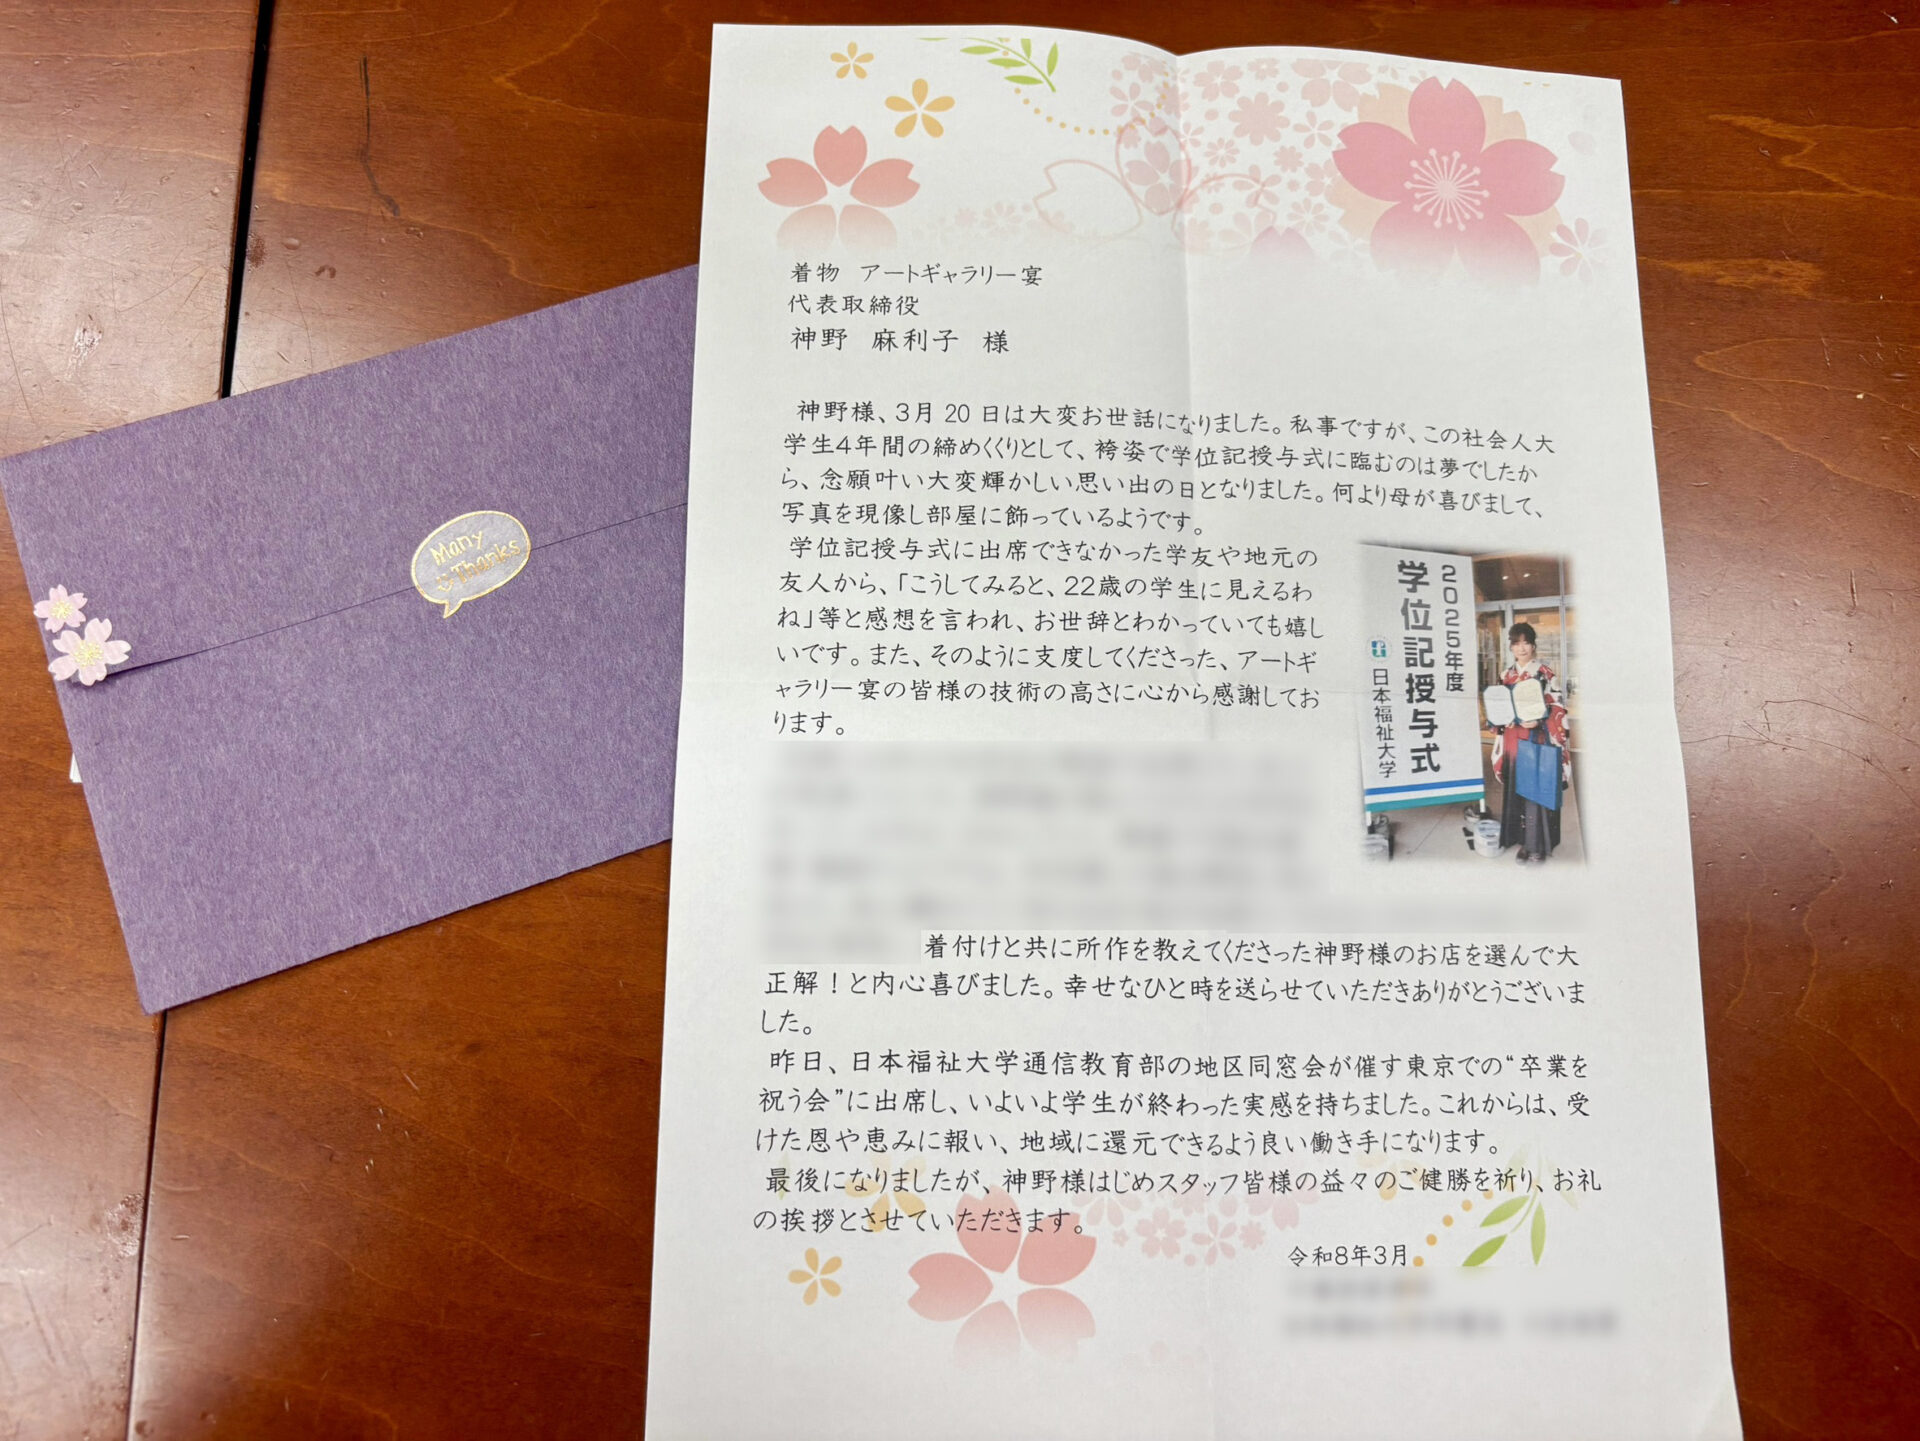 Many
Thanks
着物　アートギャラリー宴
代表取締役
神野　麻利子　様
神野様、3月 20 日は大変お世話になりました。私事ですが、この社会人大
学生4年間の締めくくりとして、袴姿で学位記授与式に臨むのは夢でしたか
ら、念願叶い大変輝かしい思い出の日となりました。何より母が喜びまして、
写真を現像し部屋に飾っているようです。
学位記授与式に出席できなかった学友や地元の
友人から、「こうしてみると、22歳の学生に見えるわ
ね」等と感想を言われ、お世辞とわかっていても嬉し
いです。また、そのように支度してくださった、アートギ
ャラリー宴の皆様の技術の高さに心から感謝してお
ります。
2025年度
学位記授与式
日本福祉大学
着付けと共に所作を教えてくださった神野様のお店を選んで大
正解！と内心喜びました。幸せなひと時を送らせていただきありがとうございま
した。
昨日、日本福祉大学通信教育部の地区同窓会が催す東京での“卒業を
祝う会”に出席し、いよいよ学生が終わった実感を持ちました。これからは、受
けた恩や恵みに報い、地域に還元できるよう良い働き手になります。
最後になりましたが、神野様はじめスタッフ皆様の益々のご健勝を祈り、お礼
の挨拶とさせていただきます。
令和8年3月